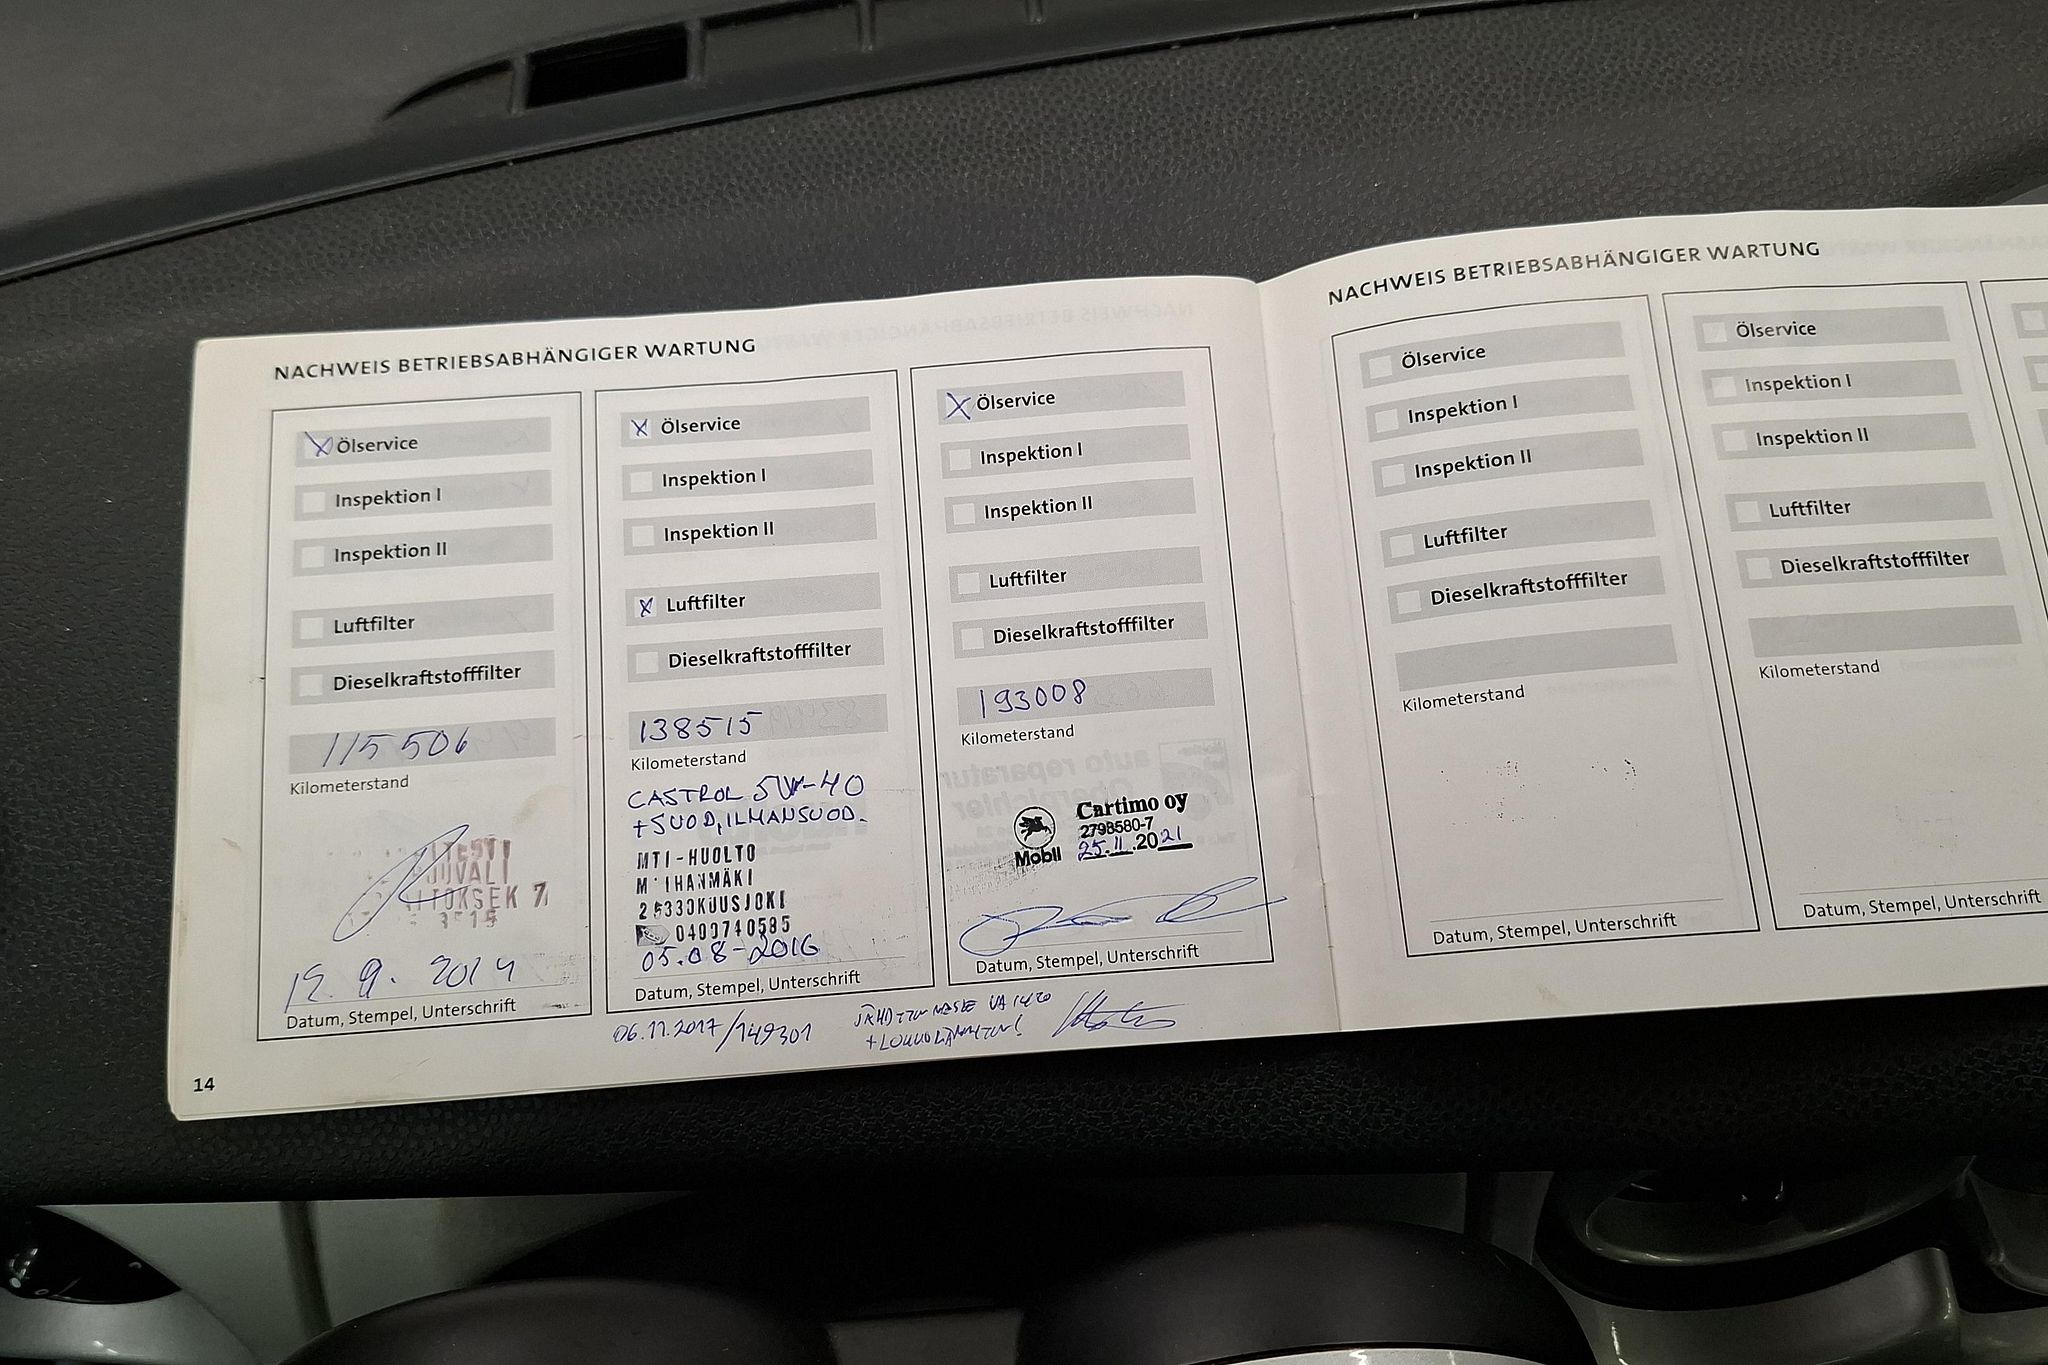 NACHWEIS BETRIEBSABHÄNGIGER WARTUNG
X Ölservice
Inspektion I
Inspektion II
Luftfilter
Dieselkraftstofffilter
115 506
Kilometerstand
12.9.2014
Datum, Stempel, Unterschrift
X Ölservice
Inspektion I
Inspektion II
X Luftfilter
Dieselkraftstofffilter
138515
Kilometerstand
CASTROL 5W-40
+SUOD, ILMANSUOD.
MTI-HUOLTO
25330KUUSJOKI
0400740585
05.08-2016
Datum, Stempel, Unterschrift
X Ölservice
Inspektion I
Inspektion II
Luftfilter
Dieselkraftstofffilter
193008
Kilometerstand
Mobil
Cartimo oy
2798580-7
25.11.2021
Datum, Stempel, Unterschrift
06.11.2017/149301
14
NACHWEIS BETRIEBSABHÄNGIGER WARTUNG
Ölservice
Inspektion I
Inspektion II
Luftfilter
Dieselkraftstofffilter
Kilometerstand
Datum, Stempel, Unterschrift
Ölservice
Inspektion I
Inspektion II
Luftfilter
Dieselkraftstofffilter
Kilometerstand
Datum, Stempel, Unterschrift